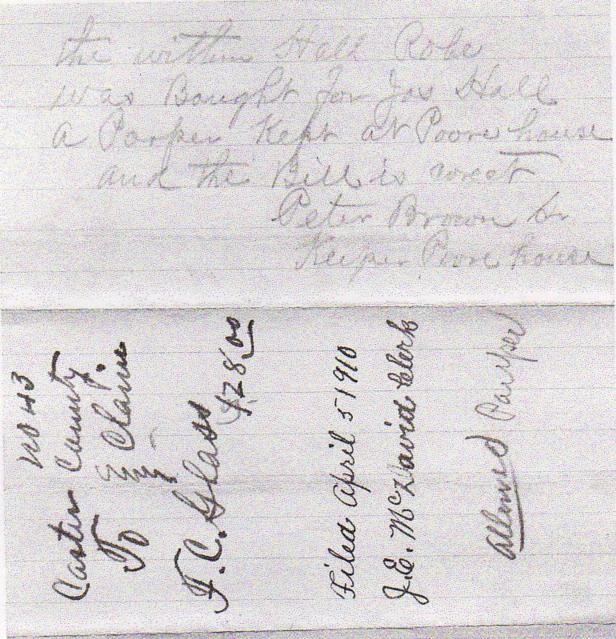 the within Hall Robe
was Bought for Jos Hall
a Porper Kept at Poore house
and the Bill is corect
Peter Brown Sr
Keeper Poore house
No 43
Carter County
To } Claim
F. C. Glass
$28.00
Filed April 5 1910
J. E. McDavid Clerk
allowed Pauper